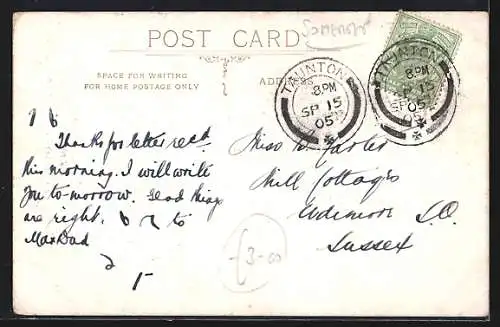 Somerset
POST CARD
SPACE FOR WRITING
FOR HOME POSTAGE ONLY
ADDRESS
TAUNTON
8 PM
SP 15
05
TAUNTON
8 PM
SP 15
05
Thanks for letter recd.
this morning. I will write
you to-morrow. Glad things
are right.
to
Ma & Dad
Miss
Mill Cottages
Udimore S.O.
Sussex
3-00